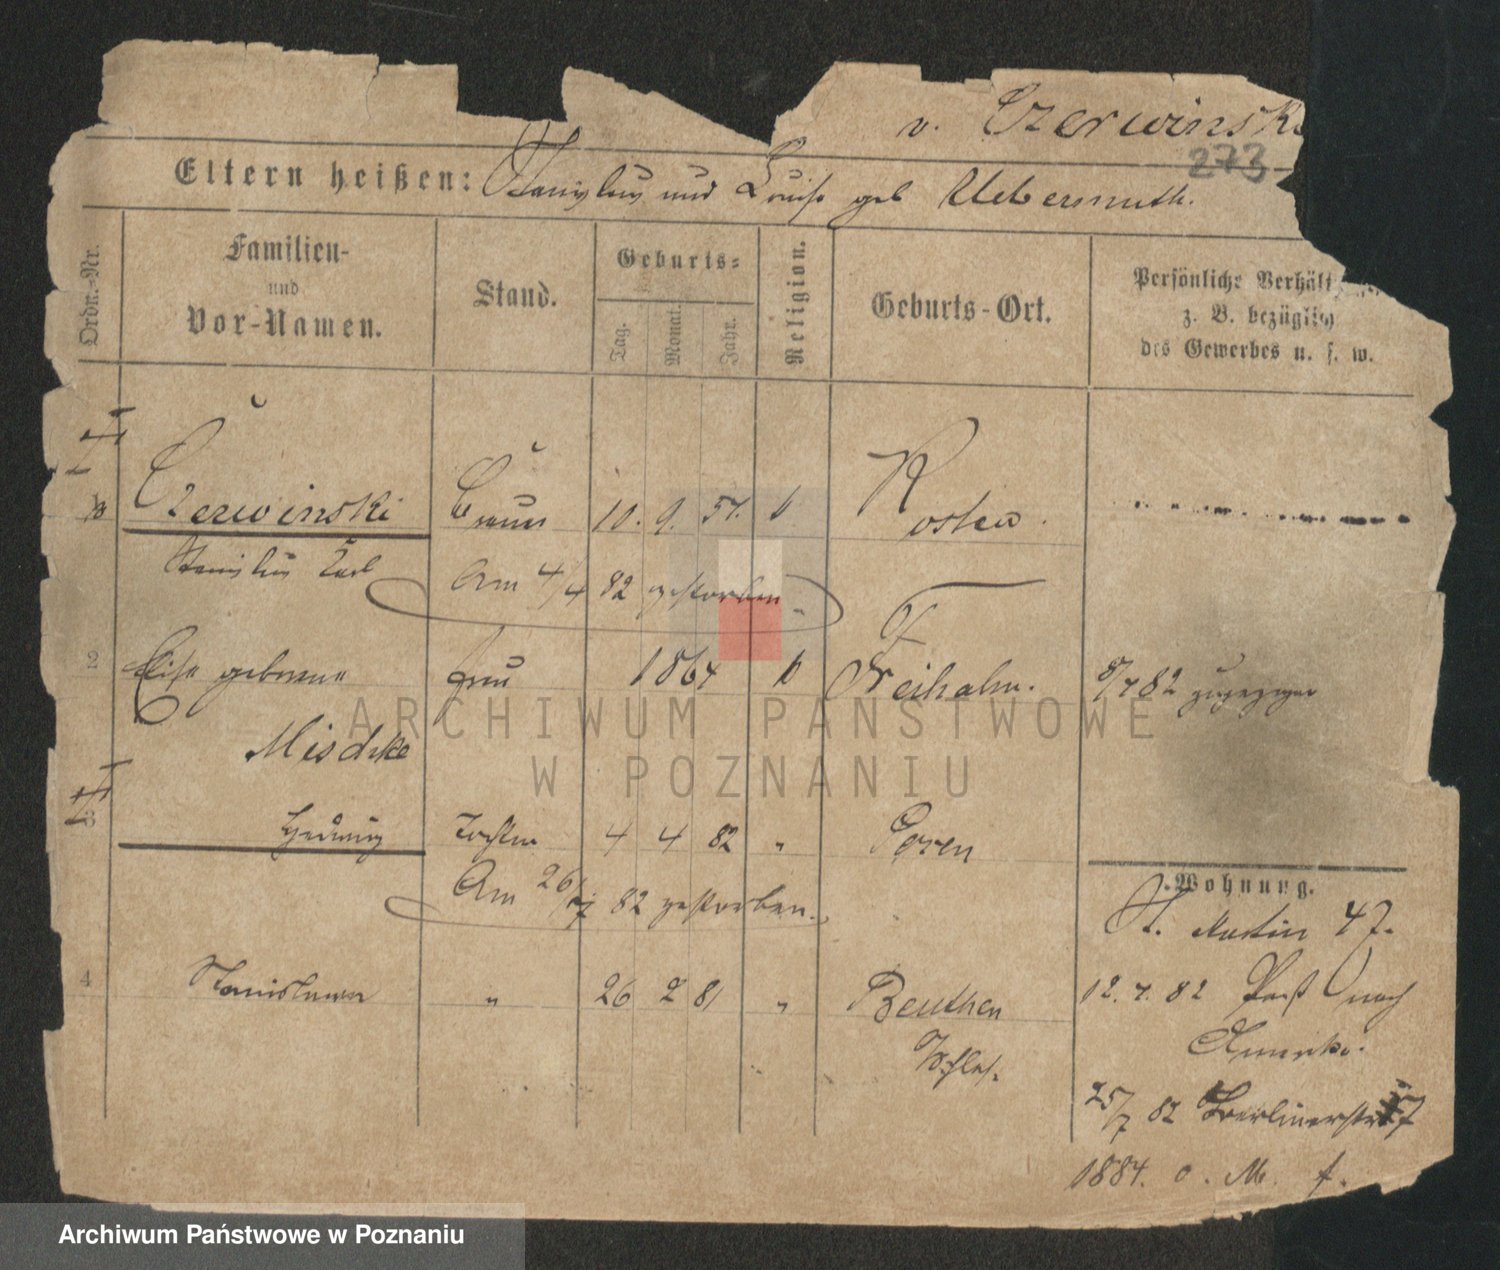 v. Czerwinski
273
Eltern heißen: Stanislaus und Louise geb Uebermuth.
Ordn.-Nr.
Familien-
und
Vor-Namen.
Stand.
Geburts-
Tag.
Monat.
Jahr.
Religion.
Geburts-Ort.
Persönliche Verhält
z. B. bezüglich
des Gewerbes u. s. w.
Czerwinski 10. 9. 57. Kosten.
Stanislaus Carl Am 4/4 82 gestorben
2 Elise geborene Frau 1864 Freihahn. 8/4 82 zugezogen
Mischke
3 Hedwig Tochter 4 4 82 " Posen
Am 26/7 82 gestorben.
Wohnung.
St. Martin 47.
4 Stanislawa " 26 2 81 " Beuthen
O/Schles.
12. 4. 82 nach
Amerika.
25/7 82 Berlinerstr 17
1884. o. M. f.
ARCHIWUM PAŃSTWOWE
W POZNANIU
Archiwum Państwowe w Poznaniu